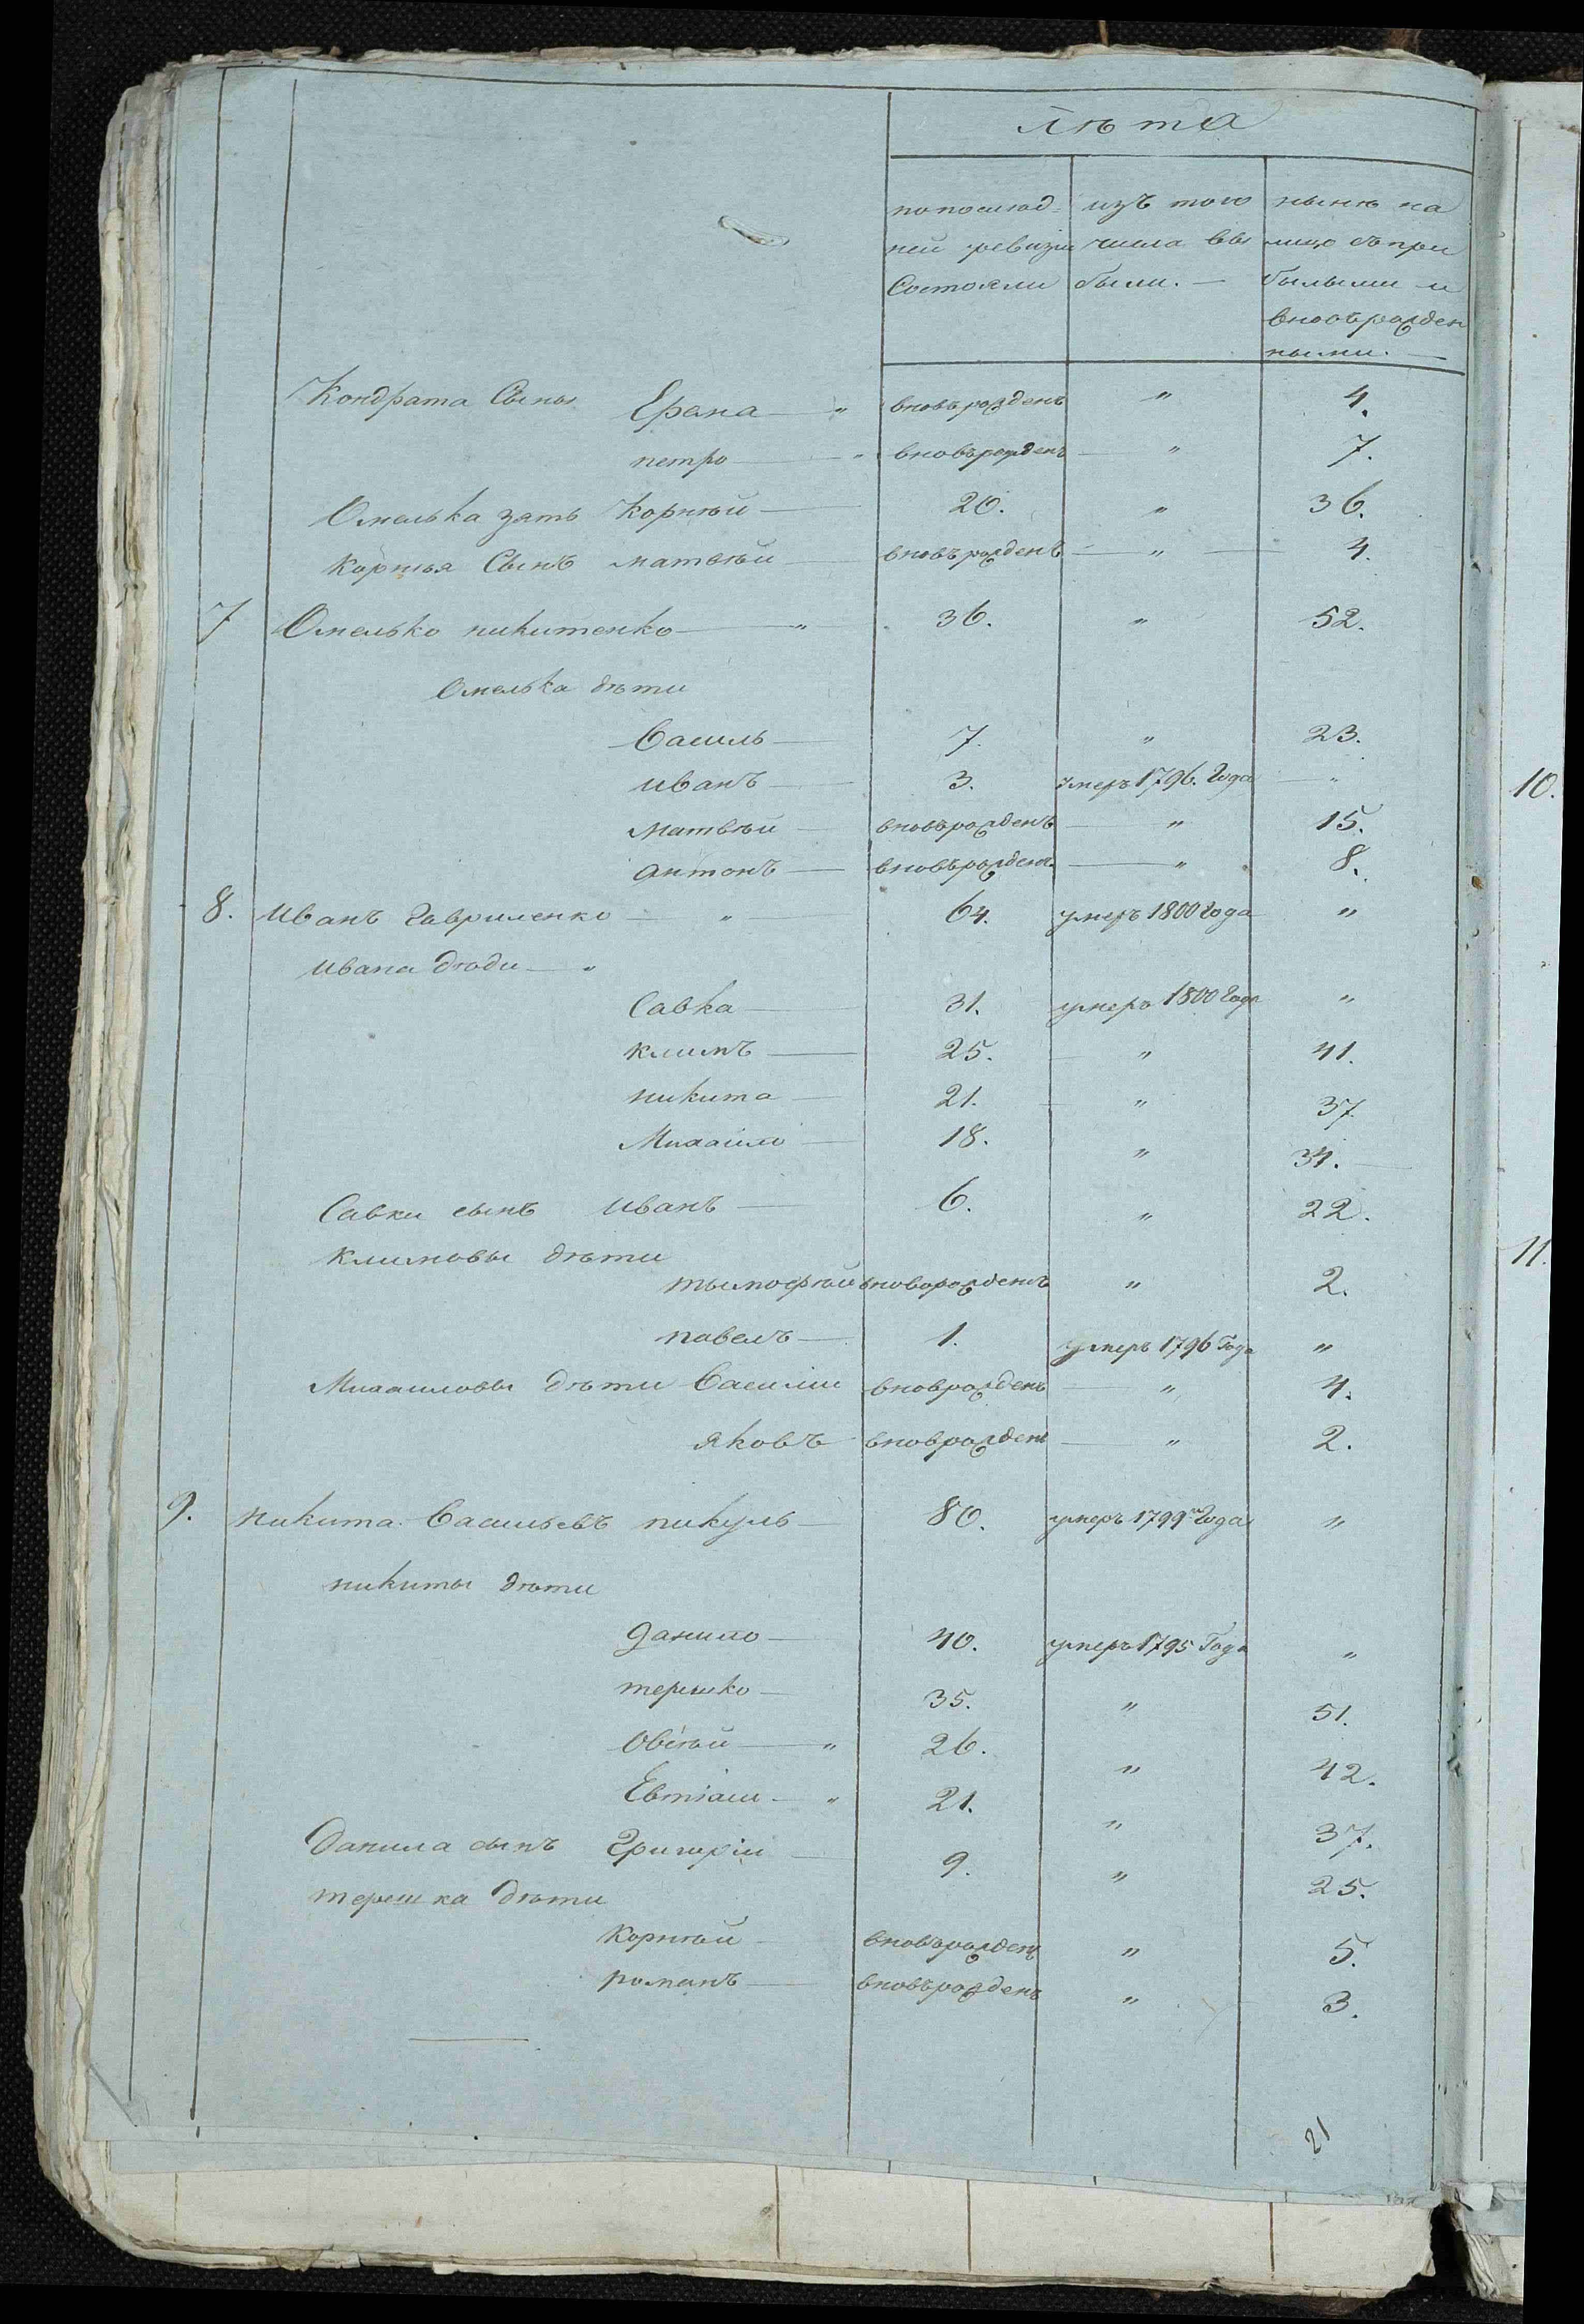 лѣта
попослѣд= изъ того нынѣ на
ней ревизіи числа вы лицо съпри
Состояли были. — былыми и
вновьрожден
ными. —
Кондрата Сыны Ерема — „ вновьрожденъ „ 4.
петро — „ вновьрожденъ — „ 7.
Омелька зять Корнѣй — 20. „ 36.
Корнѣя Сынъ матвѣй — вновьрожденъ — „ — 4.
7 Омелько никитенко — „ 36. „ 52.
Омелька дѣти
Василь — 7. „ 23.
иванъ — 3. умеръ 1796. Года — „
Матвѣй — вновьрожденъ — „ 15.
антонъ — вновьрожденъ — „ 8.
8. Иванъ Гавриленко — „ — 64. умеръ 1800 Года „
ивана дѣди — „
Савка — 31. умеръ 1800 Года „
климъ — 25. „ 41.
никита — 21. „ 37
Михаило — 18. „ 34. —
Савки сынъ иванъ — 6. „ 22.
климовы дѣти
тымофѣй вноворожденъ „ 2.
павелъ — 1. умеръ 1796 Года „
Михаиловы дѣти Василии вноврожденъ — „ 4.
яковъ вноврожденъ — „ 2.
9. никита Васильевъ пикуль — 80. умеръ 1799го Года „
никиты дѣти
данило — 40. умеръ 1795 Года „
терешко — 35. „ 51.
Овсѣй — „ 26. „ 42.
Евтіаи — „ 21. „ 37.
Данила сынъ Григоріи — 9. „ 25.
терешка дѣти
корнѣй — вновьрожденъ „ 5.
романъ — вновьрожденъ „ 3.
21
10.
11.